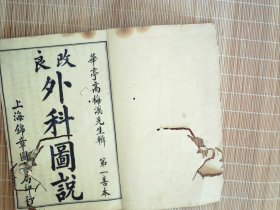 華亭高梅溪先生輯
第一善本
改良
外科圖說
上海錦章圖書局印行